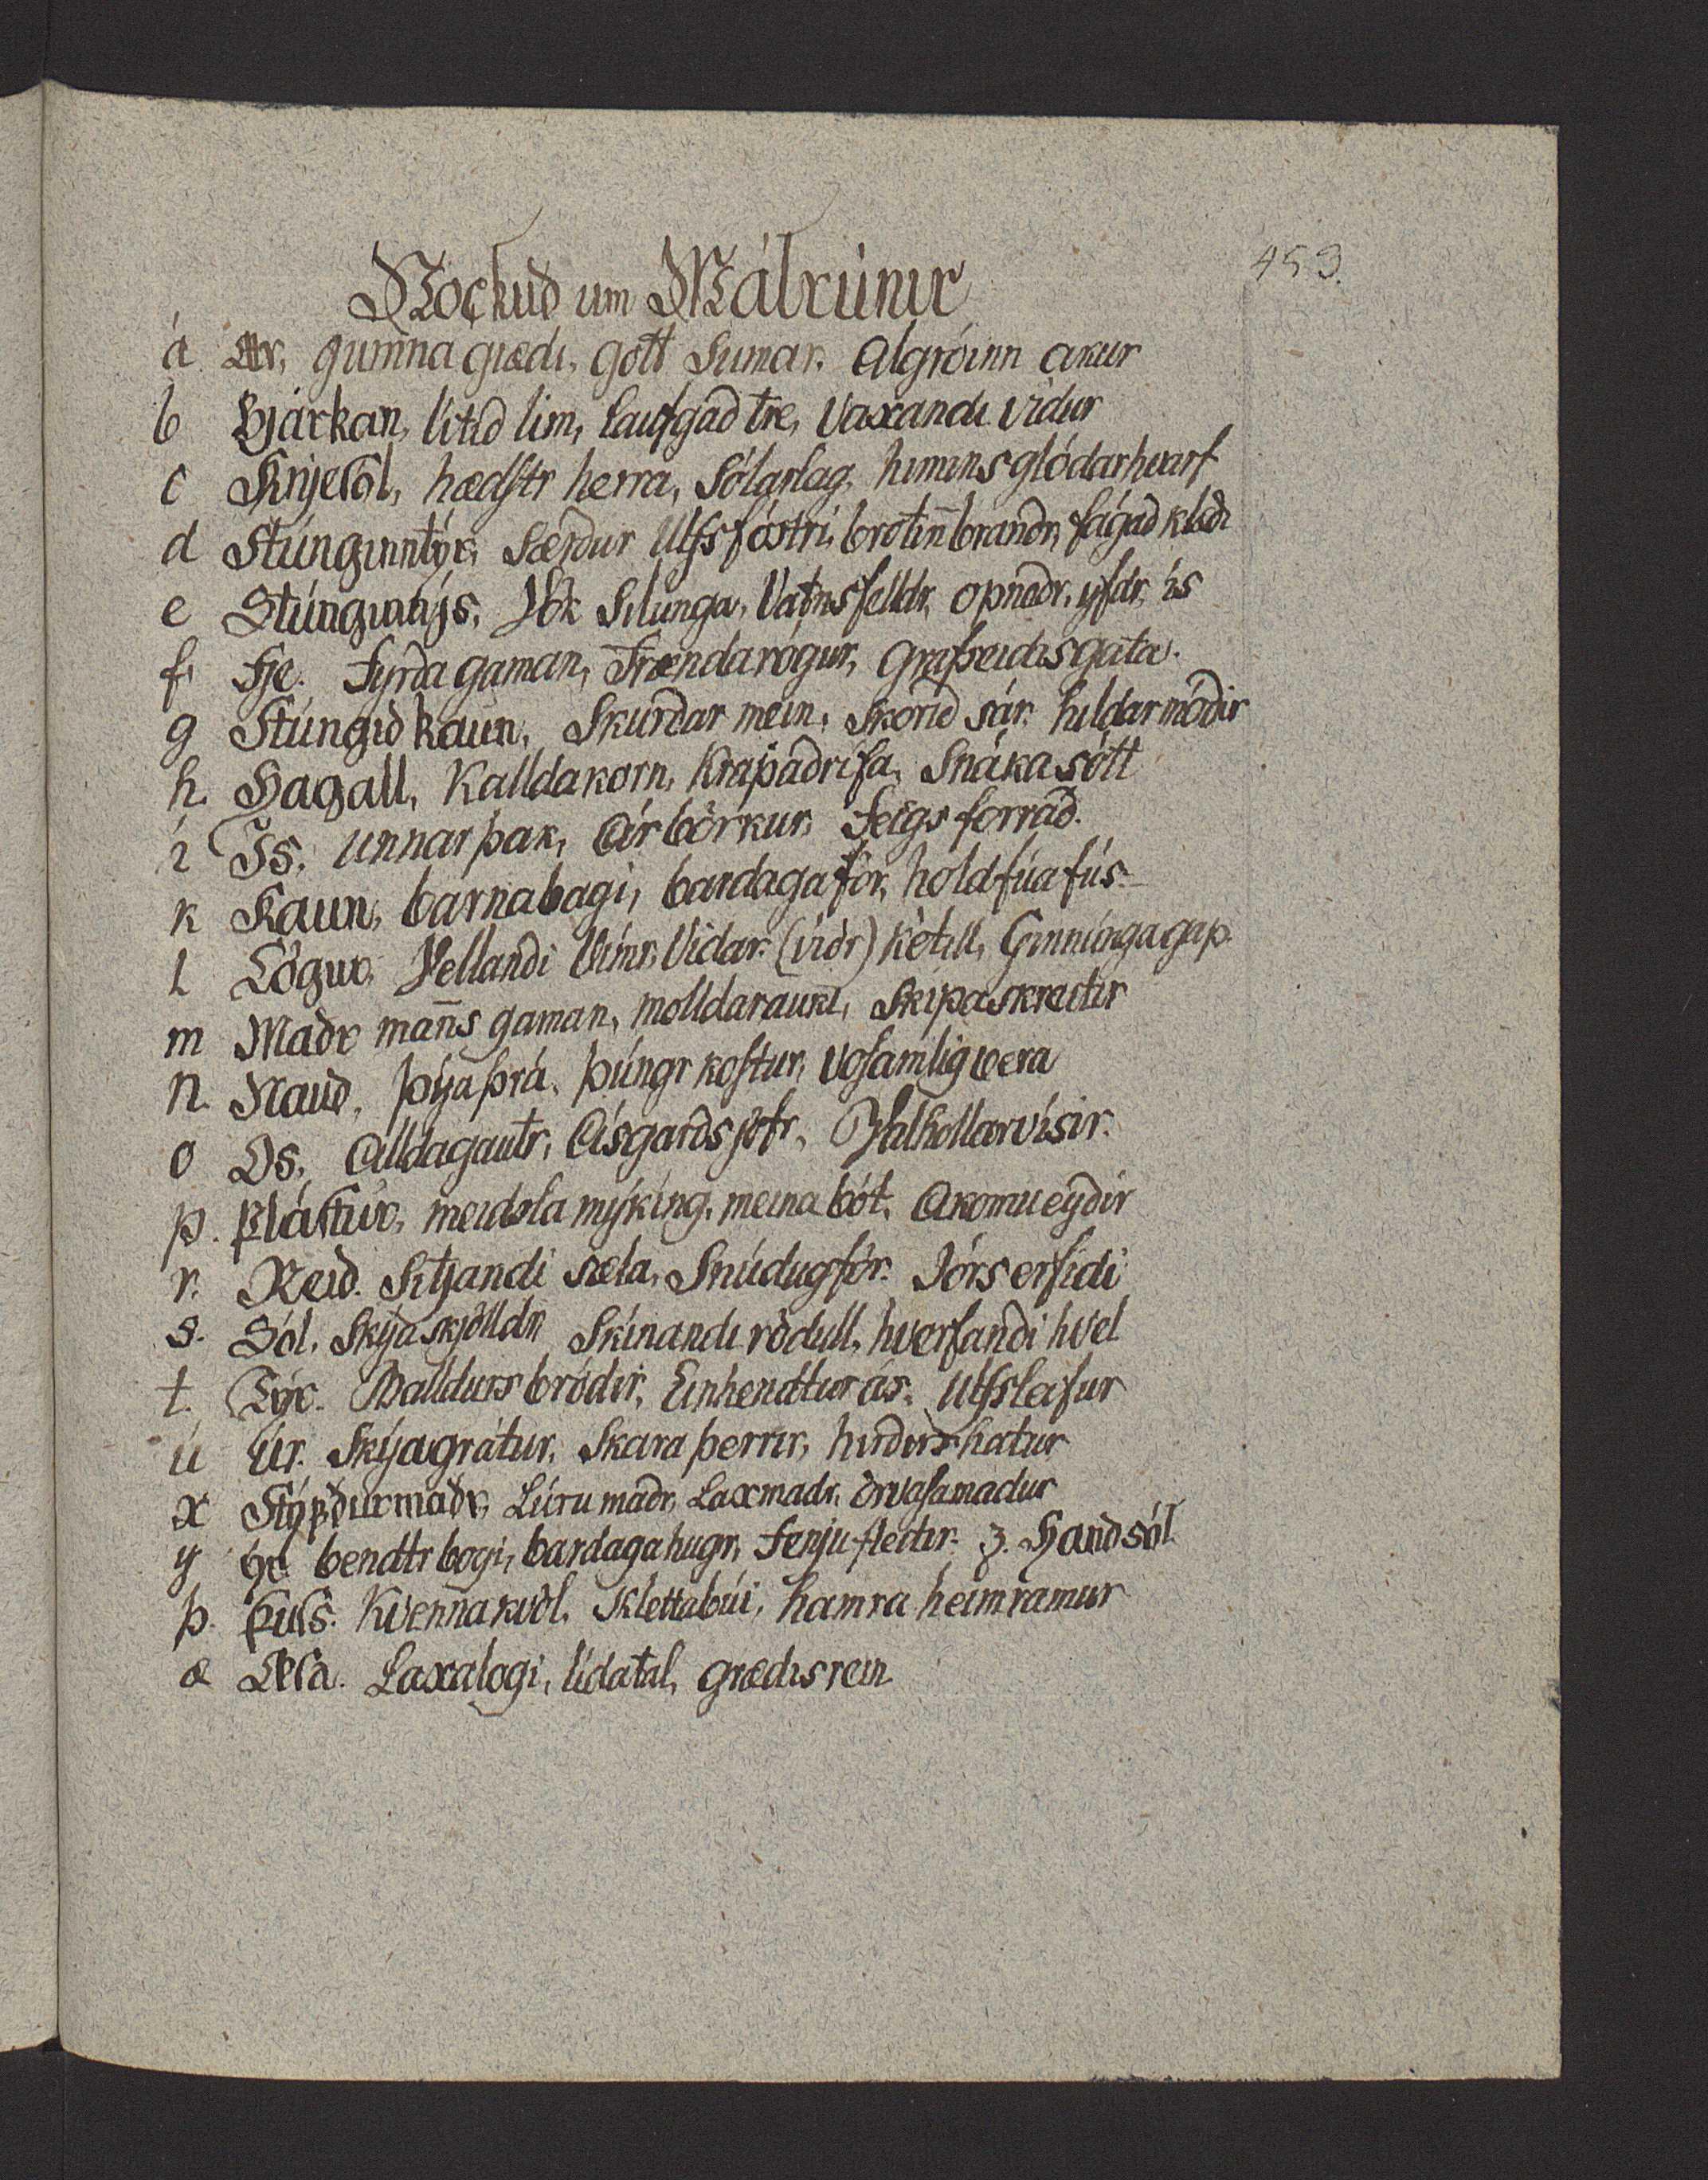 453.
Nockud um Málrúnir
á Ar, gumna giædi, gott Sumar, Algróinn akur
b Bjarkan, lítid lim, laufgad tre, Vaxandi vidur
c Knjesól, hædstr herra, Sólarlag, himins glódarhvarf
d Stúnginntýr, Særdur Ulfs fóstri, brotin̄ brandr, fágad klædi
e Stúnginnýs, Vök Silunga, Vatnsfelldr, opnadr, yfdr, ís
f Fje. Fyrda gaman, Frændarógur, Grafseidisgata.
g Stúngid kaun, Skurdar mein, Skorid sár, hildar módir
h. Hagall, Kalldakorn, Krapadrífa, Snákasótt
í Ís, unnarþak, Árbörkur, feigs forrád.
k Kaun, barnabagi, bardagaför, holdfúafús.
l Lögur, Vellandi Vimr, Vidar (vidr) ketill, Ginníngagap.
m Madr man̄s gaman, molldarauki, Skipaskreitir
n. Naud, þýjaþrá, þúngr kostur, Vosamlig vera
o Os, Alldagautr, Ásgards jöfr, Valhollarvísir.
p. Plástur, meidsla mýking, meina bót, Akomu eydir
r. Reid. Sitjandi sæla, Snúdugför. Jórs erfidi
s. Sól. Skýja skjölldr Skínandi rödull, hverfandi hvel
t. Týr. Balldurs bródir, Einhendtur ás, Ulfsleifur
ú Úr. Skýagrátur, Skara þerrir, hirdirs hatur
x Stýpdurmadr, Lúru madr, Laxmadr, örvasamadur
y Yr bendtr bogi, bardagahugr, Fenju fleitir. z. Handsól
þ. þuss. Kvennakvöl. Klettabúi, hamra heimramur
æ Æsa. Laxalogi, lidatal, grædisrein